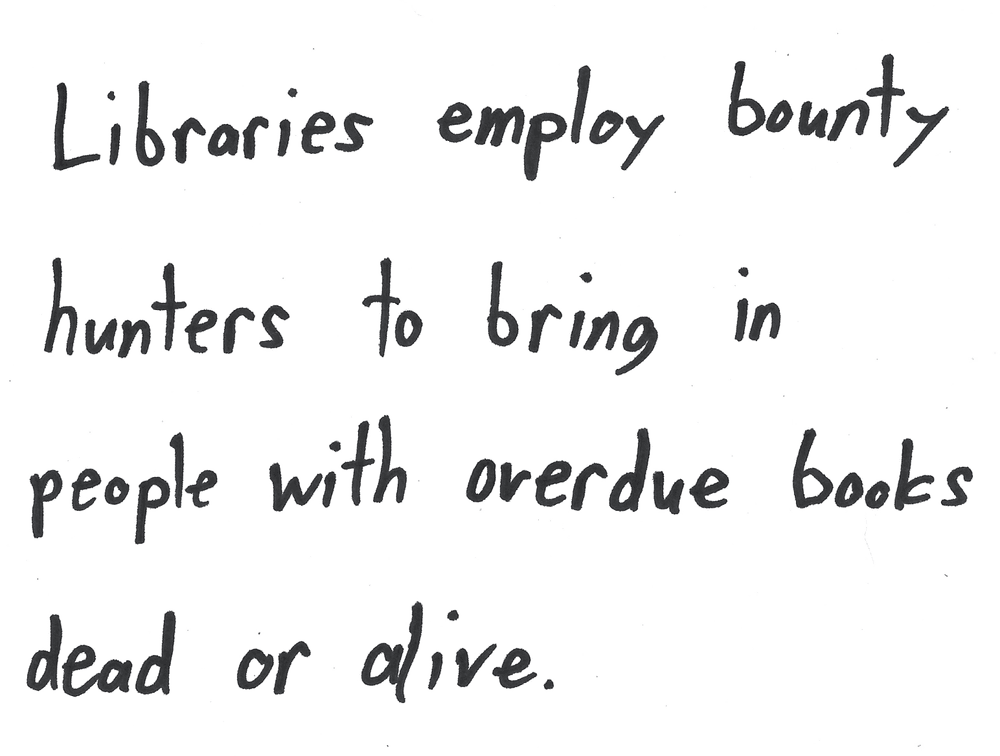 Libraries employ bounty
hunters to bring in
people with overdue books
dead or alive.